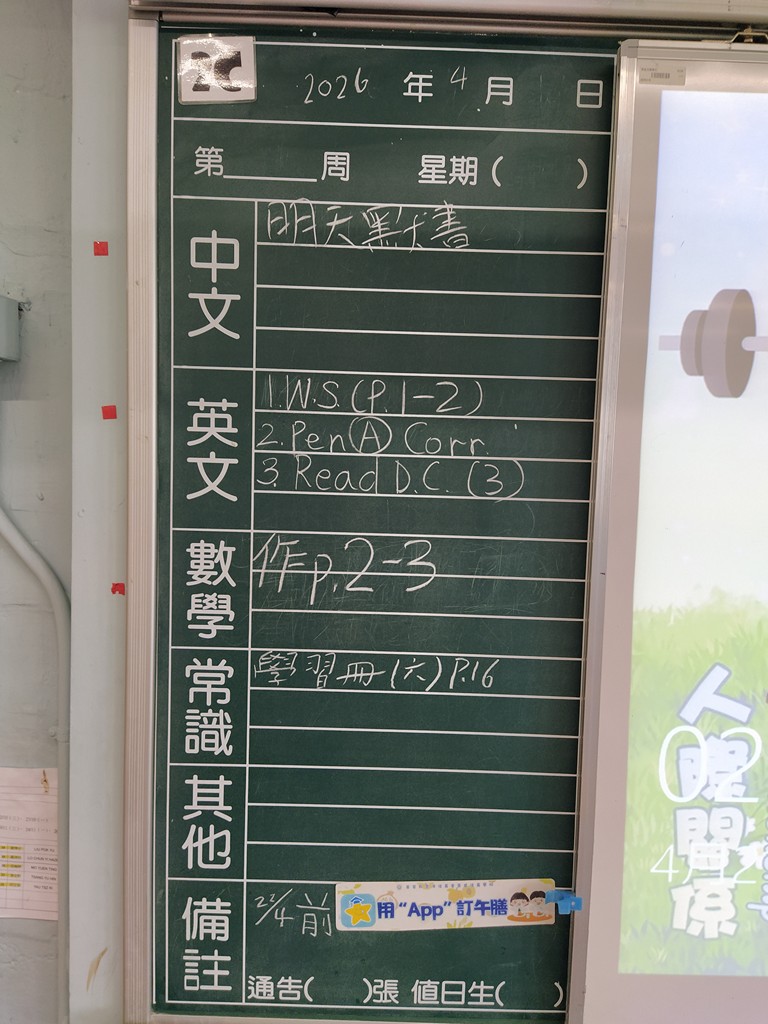 2C
2026 年 4 月 日
第 周 星期 ( )
中文
明天默書
英文
1. W.S. (P.1-2)
2. Pen Ⓐ Corr.
3. Read D.C. (3)
數學
作 p.2-3
常識
學習冊 (六) P.16
其他
備註
22/4 前
用 “App” 訂午膳
通告( )張 值日生( )
人際關係
02
4月2